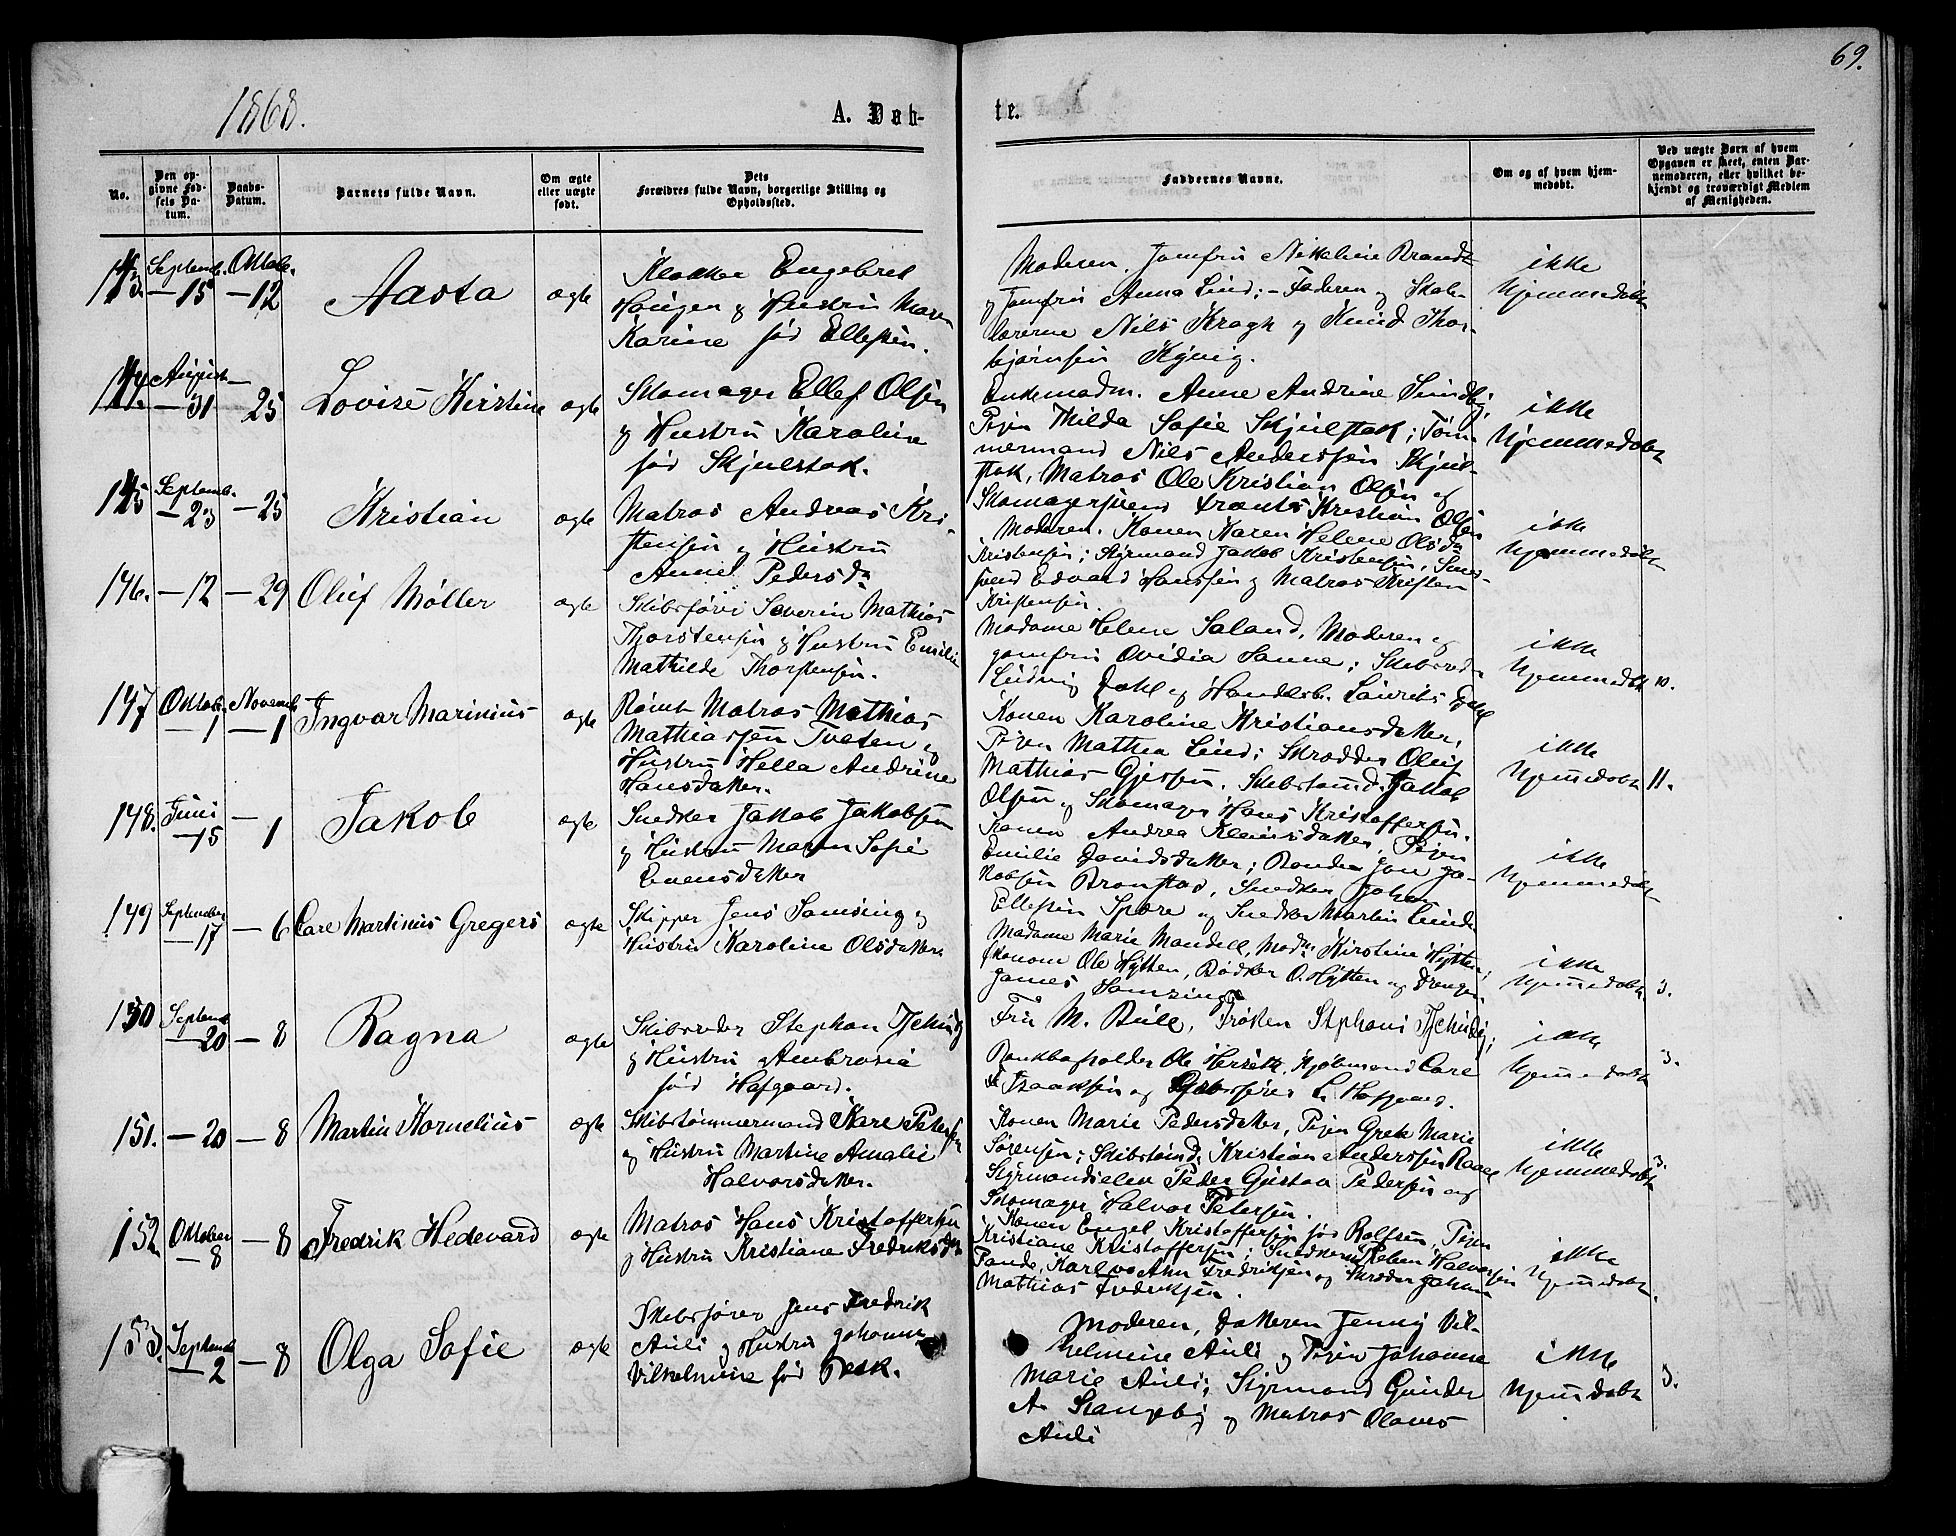 69.
1868.
A. Døb-
te.
No.
Den op-
givne Fød-
sels Da-
tum.
Daabs-
Datum.
Barnets fulde Navn.
Om ægte
eller uægte
født.
Dets
Forældres fulde Navn, borgerlige Stilling og
Opholdssted.
Faddernes Navne.
Om og af hvem hjem-
medøbt.
Ved uægte Børn af hvem
Opgaven er skeet, enten Bar-
nemoderen, eller hvilket be-
kjendt og troværdigt Medlem
af Menigheden.
143. Septemb. Oktobr.
— 15 — 12
Aasta
ægte
Klokker Engebret
Haugen og Hustru Maren
Karine født Ellefsen.
Moderen, Jomfru Nikoline Brandt
og Jomfru Anna Lind; – Faderen og Skole-
lærerne Nils Kragh og Knud Thor-
bjørnsen
ikke
hjemmedøbt
144. August —
— 31 — 25
Lovise Kirstine
ægte
Skomager Ellef Olsen
og Hustru Karoline
født Skjulstak.
Enkemadm. Anne Andrine Sundby,
Pigen Thilda Sofie Skjulstak; Tøm-
mermand Nils Anderssen Skjul-
stak, Matros Ole Kristian Olsen og
Skomagersvend Frants Kristian Olsen
ikke
hjemmedøbt
145 Septemb.
— 23 — 25
Kristian
ægte
Matros Andreas Kri-
stensen og Hustru
Anne Pedersd.
Moderen. Konen Karen Helene Olsdr
Kristensen; Styrmand Jakob Kristensen,
Edvard Hanssen og Matros Kristen
Kristensen.
ikke
hjemmedøbt
146. — 12 — 29
Oluf Møller
ægte
Skibsfører Severin Mathias
Thorstensen og Hustru Emilie
Mathilde Thorstensen.
Madame Helene Saland, Moderen og
Jomfru Ovidia Hanne; Skibsred.
Ludvig Dahl og Handelsb. Laurits
ikke
hjemmedøbt 10.
147 Oktob. Novemb.
— 1 — 1
Ingvar Marinius
ægte
Rømt Matros Mathias
Mathiassen Tveten og
Hustru Hella Andrine
Hansdatter.
Konen Karoline Kristiansdatter,
Pigen Mathea Lind; Skrædder Oluf
Mathias Gjersen, Skibstømd. Jakob
Olsen og Skomager Hans Kristoffersen.
ikke
hjemmedøbt 11.
148. Juni —
— 15 1
Jakob
ægte
Snedker Jakob Jakobsen
og Hustru Maren Sofie
Evensdatter
Konen Andrea Kleiusdatter, Pigen
Emilie Davidsdatter; Bonde Jon Ja-
kobsen Bronstad, Snedker Johan
Ellefsen Spære og Snedker Martin Lund
ikke
hjemmedøbt
149 September
— 17 — 6
Carl Martinius Gregers
ægte
Skipper Jens Samsing og
Hustru Karoline Olsdatter
Madame Marie Mandell, Mad. Kirstine Hytten;
Økonom Ole Hytten, Bødker O. Hytten og Drengen
James Samsing
ikke
hjemmedøbt 3.
150 Septemb
— 20 — 8
Ragna
ægte
Skibsreder Stephan Tschudy
og Hustru Ambrosia
født Hafgaard.
Fru M. Bull, Frøken Stphani Tschudy;
Bankbogholder Ole Hersetk, Kjøbmand Carl
Isaaksen og Skibsfører L. Hafgaard.
ikke
hjemmedøbt 3.
151. — 20 — 8
Martin Kornelius
ægte
Skibstømmermand Karl Petersen
og Hustru Martine Amalie
Halvorsdatter.
Konen Marie Pedersdatter, Pigen Grete Marie
Sørensen; Skibstømd. Kristian Anderssen Raae
Styrmandselev Peder Gustav Pedersen og
Skomager Halvor Petersen.
ikke
hjemmedøbt 3.
152 Oktober
— 8 — 8
Fredrik Hedevard
ægte
Matros Hans Kristoffersen
og Hustru Kristiane Fredriksdr
Konen Engel Kristoffersen født Rolfsen, Pigen
Kristiane Kristoffersen; Snedkersvd. Reben Halvorsen
Pande, Fredriksen og Skræder Johan
Mathias Fredriksen.
ikke
hjemmedøbt.
153. Septemb
— 2 — 8
Olga Sofie
ægte
Skibsfører Jens Fredrik
Auli og Hustru Johanne
Vilhelmine født Beck.
Moderen, Datteren Jenny Vil-
helmine Auli og Pigen Johanne
Marie Auli; Styrmand Gunder
A. Stangeby og Matros Olaves
Auli
ikke
hjemmedøbt 3.